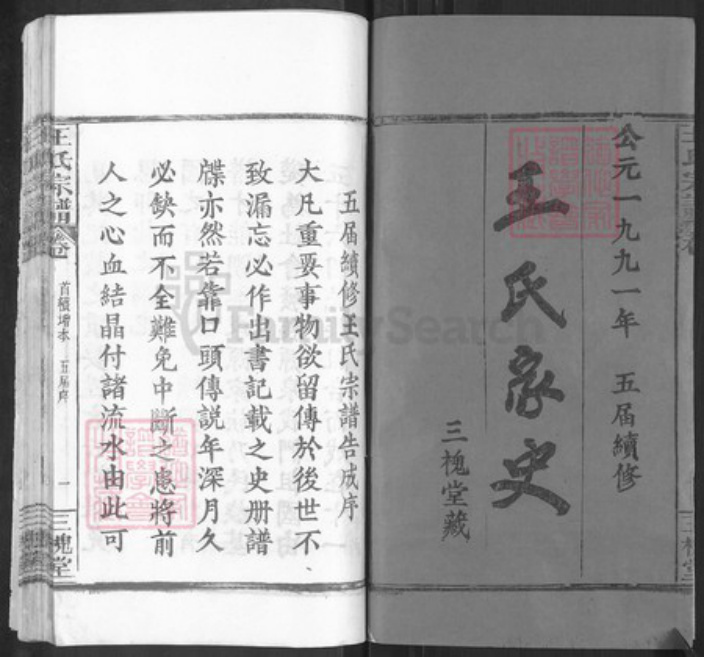 公元一九九一年 五届續修
王氏家史
三槐堂藏
五届續修王氏宗譜告成序
大凡重要事物欲留傳於後世不
致漏忘必作出書記載之史册譜
牒亦然若靠口頭傳説年深月久
必缺而不全難免中斷之患將前
人之心血結晶付諸流水由此可
王氏宗譜 卷 首續增本 五届序 一 三槐堂
FamilySearch